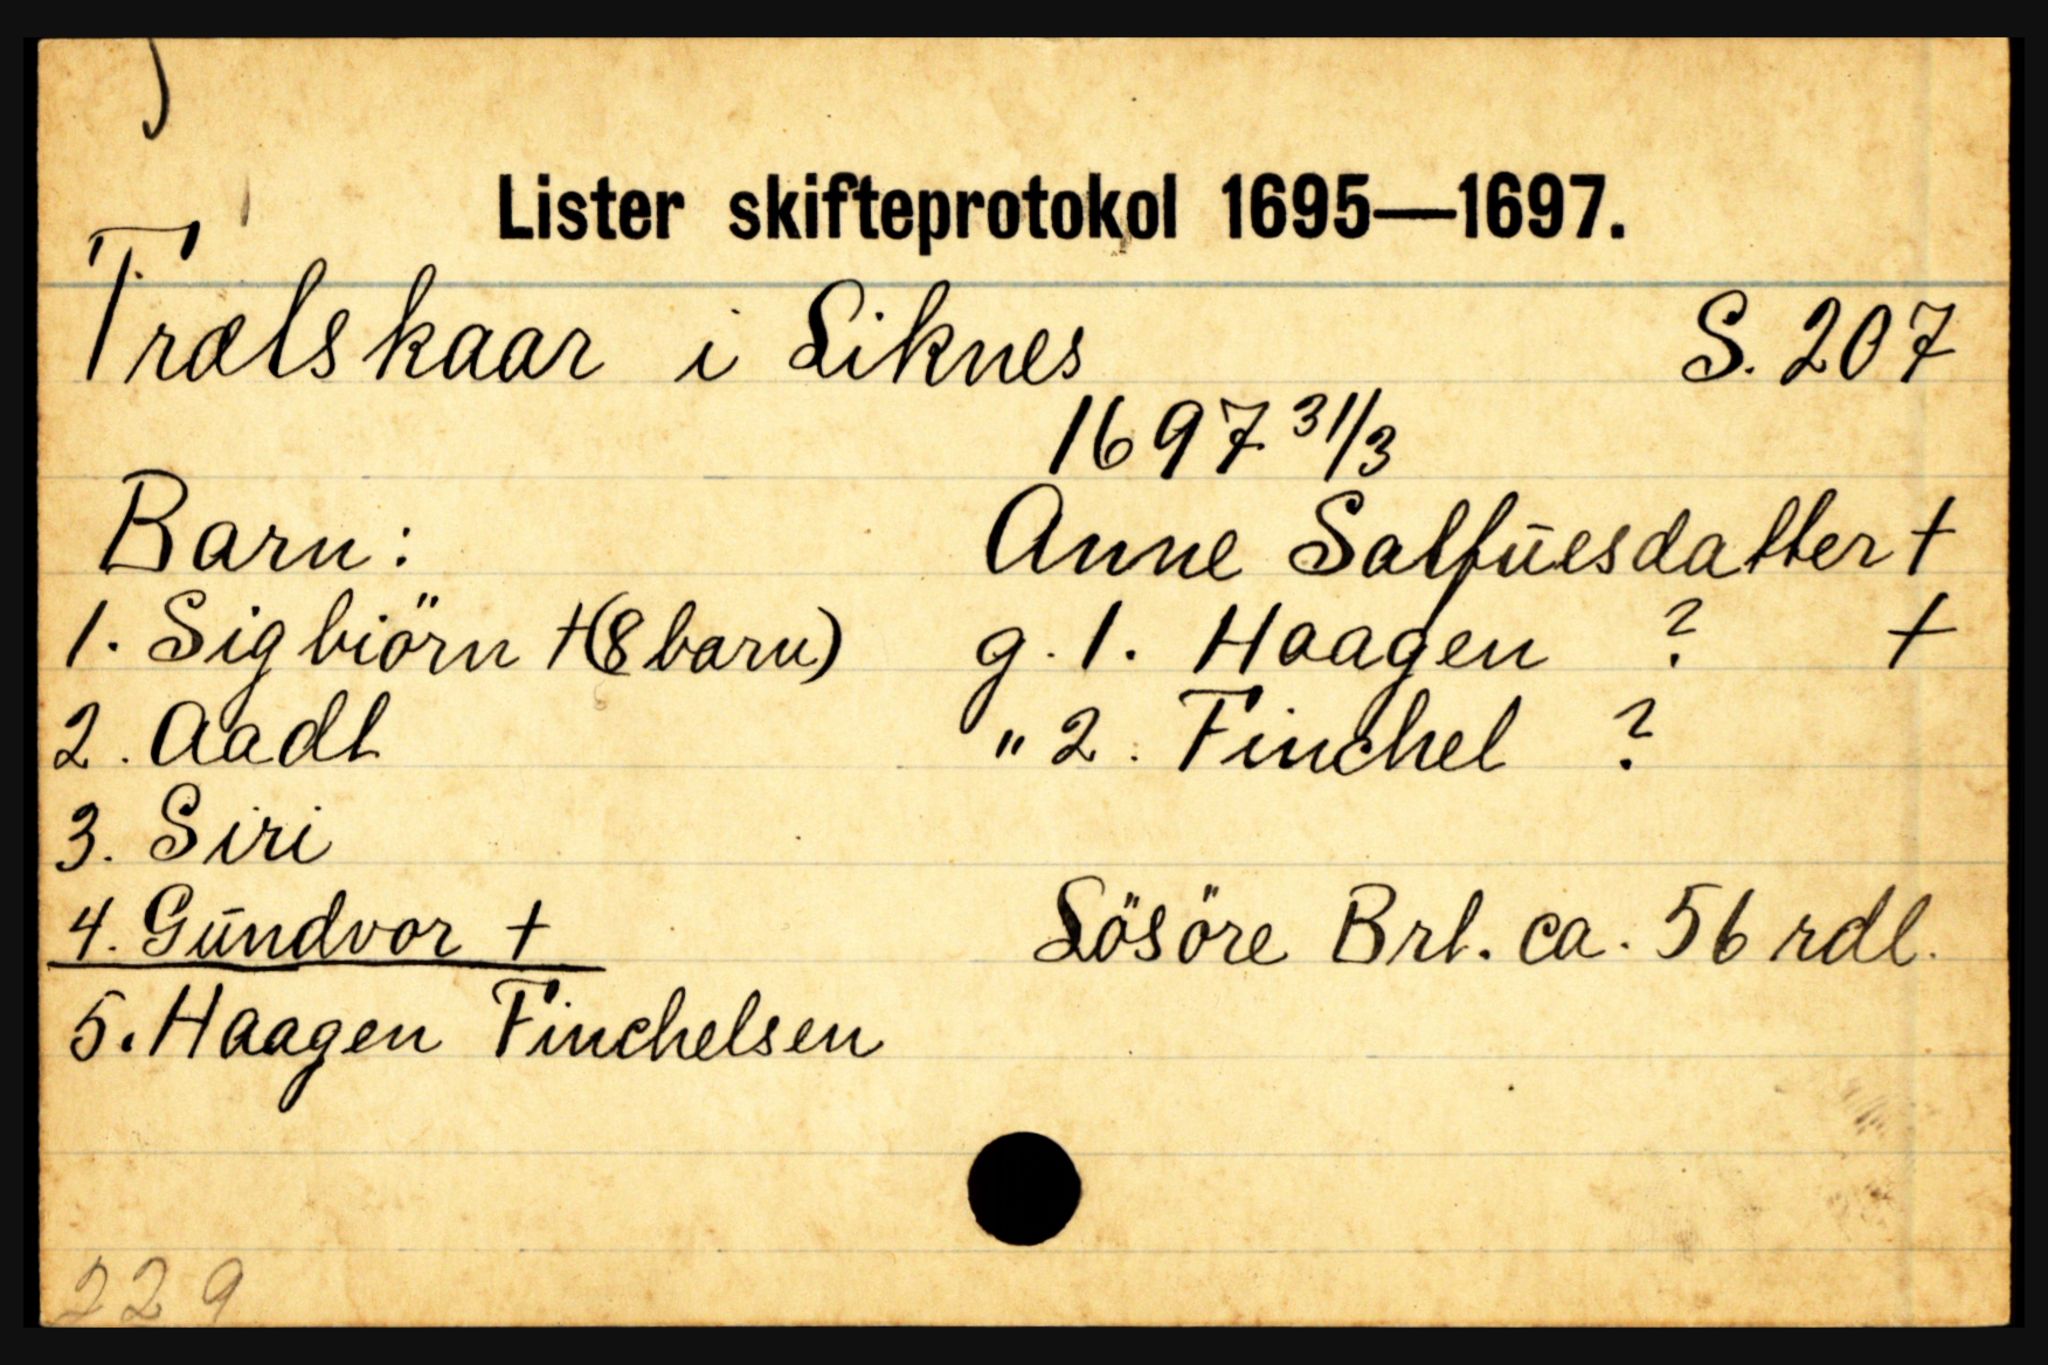 Lister skifteprotokol 1695—1697.
Trælskaar i Liknes S. 207
1697 31/3
Barn: Anne Salfūesdatter +
1. Sigbiörn + (8 barn) g. 1. Haagen ? +
2. Aadl " 2. Finchel ?
3. Siri
4. Gūndvor + Lösöre Brl. ca. 56 rdl.
5. Haagen Finchelsen
229